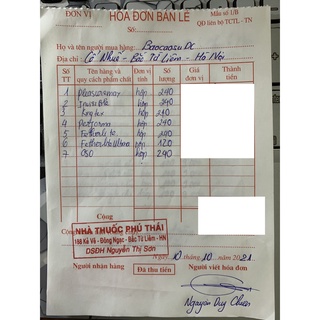 ĐƠN VỊ
HÓA ĐƠN BÁN LẺ
Mẫu số 1/B
QĐ liên bộ TCTL - TN
Số:
Họ và tên người mua hàng: Baocaosu DC
Địa chỉ: Cổ Nhuế - Bắc Từ Liêm - Hà Nội
Số TT Tên hàng và quy cách phẩm chất Đơn vị tính Số lượng Giá đơn vị Thành tiền
1 Pleasuremax hộp 240
2 Invisible hộp 240
3 Kingtex hộp 240
4 Performa hộp 240
5 Fetherlite hộp 240
6 Fetherlite Ultima hộp 120
7 OSO hộp 240
Cộng
Cộng
NHÀ THUỐC PHÚ THÁI
168 Kẻ Vẽ - Đông Ngạc - Bắc Từ Liêm - HN
DSĐH Nguyễn Thị Sơn
Ngày 10 tháng 10 năm 2021
Người nhận hàng
Đã thu tiền
Người viết hóa đơn
Nguyen Duy